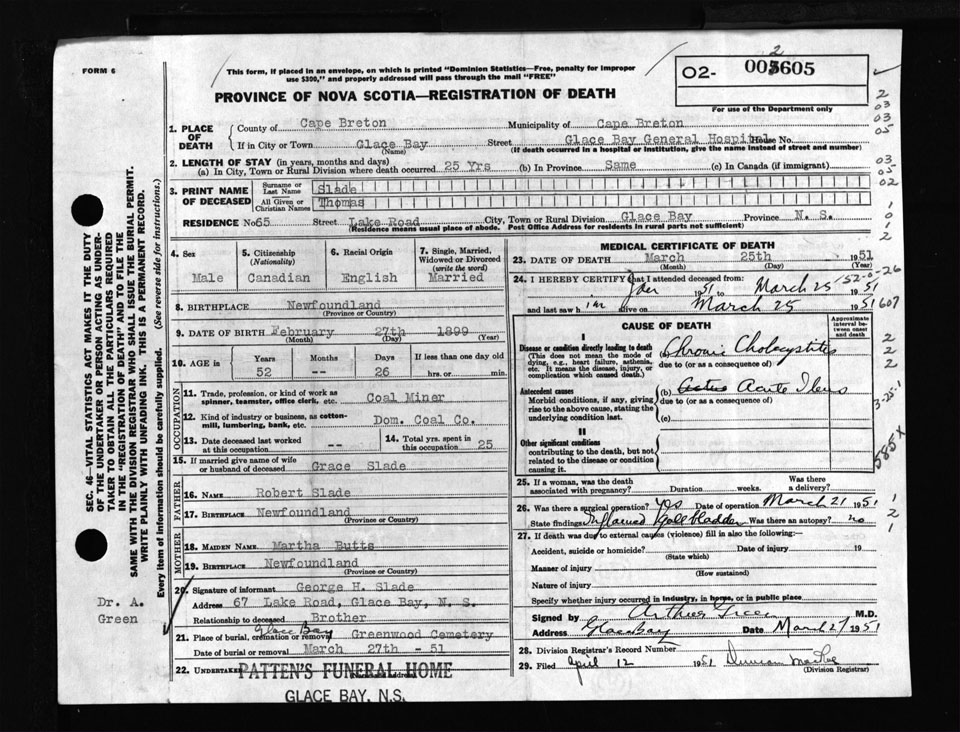 FORM 6
This form, if placed in an envelope, on which is printed "Dominion Statistics—Free, penalty for improper
use $300," and properly addressed will pass through the mail "FREE"
PROVINCE OF NOVA SCOTIA—REGISTRATION OF DEATH
O2-
2
005605
For use of the Department only
1. PLACE OF DEATH
County of Cape Breton Municipality of Cape Breton
If in City or Town Glace Bay Street Glace Bay General Hospital House No.
(Name) (If death occurred in a hospital or institution, give the name instead of street and number)
2. LENGTH OF STAY (in years, months and days)
(a) In City, Town or Rural Division where death occurred 25 Yrs (b) In Province Same (c) In Canada (if immigrant)
3. PRINT NAME OF DECEASED
Surname or Last Name Slade
All Given or Christian Names Thomas
RESIDENCE No 65 Street Lake Road City, Town or Rural Division Glace Bay Province N. S.
(Residence means usual place of abode. Post Office Address for residents in rural parts not sufficient)
4. Sex
Male
5. Citizenship
(Nationality)
Canadian
6. Racial Origin
English
7. Single, Married,
Widowed or Divorced
(write the word)
Married
8. BIRTHPLACE Newfoundland
(Province or Country)
9. DATE OF BIRTH February 27th 1899
(Month) (Day) (Year)
10. AGE in
Years Months Days If less than one day old
52 -- 26 hrs. or min.
OCCUPATION
11. Trade, profession, or kind of work as
spinner, teamster, office clerk, etc. Coal Miner
12. Kind of industry or business, as cotton-
mill, lumbering, bank, etc. Dom. Coal Co.
13. Date deceased last worked
at this occupation --
14. Total yrs. spent in
this occupation 25
15. If married give name of wife
or husband of deceased Grace Slade
FATHER
16. NAME Robert Slade
17. BIRTHPLACE Newfoundland
(Province or Country)
MOTHER
18. MAIDEN NAME Martha Butts
19. BIRTHPLACE Newfoundland
(Province or Country)
20. Signature of informant George H. Slade
Address 67 Lake Road, Glace Bay, N. S.
Relationship to deceased Brother
Glace Bay
21. Place of burial, cremation or removal Greenwood Cemetery
Date of burial or removal March 27th - 51
22. UNDERTAKER PATTEN'S FUNERAL HOME
GLACE BAY, N.S.
MEDICAL CERTIFICATE OF DEATH
23. DATE OF DEATH March 25th 1951
(Month) (Day) (Year)
24. I HEREBY CERTIFY that I attended deceased from:
1951 to March 25 1951
and last saw h im alive on March 25 1951
CAUSE OF DEATH
Approximate
interval between
onset
and death
I
Disease or condition directly leading to death
(This does not mean the mode of
dying, e.g., heart failure, asthenia,
etc. It means the disease, injury, or
complication which caused death.)
(a) Chronic Cholecystitis
due to (or as a consequence of)
Antecedent causes
Morbid conditions, if any, giving
rise to the above cause, stating the
underlying condition last.
(b) Acute Ileus
due to (or as a consequence of)
(c)
II
Other significant conditions
contributing to the death, but not
related to the disease or condition
causing it.
25. If a woman, was the death
associated with pregnancy? Duration weeks. Was there
a delivery?
26. Was there a surgical operation? Yes Date of operation March 21 1951
State findings Inflamed Gall bladder Was there an autopsy? no
27. If death was due to external causes (violence) fill in also the following:—
Accident, suicide or homicide? Date of injury 19
(State which)
Manner of injury
(How sustained)
Nature of injury
Specify whether injury occurred in industry, in home, or in public place
Signed by Arthur Green M.D.
Address Glace Bay Date March 27 1951
28. Division Registrar's Record Number
29. Filed April 12 1951 Duncan
(Division Registrar)
SEC. 46—VITAL STATISTICS ACT MAKES IT THE DUTY
OF THE UNDERTAKER OR PERSON ACTING AS UNDER-
TAKER TO OBTAIN ALL THE PARTICULARS REQUIRED
IN THE "REGISTRATION OF DEATH" AND TO FILE THE
SAME WITH THE DIVISION REGISTRAR WHO SHALL ISSUE THE BURIAL PERMIT.
WRITE PLAINLY WITH UNFADING INK. THIS IS A PERMANENT RECORD.
Every item of information should be carefully supplied. (See reverse side for instructions.)
Dr. A.
Green
2
03
03
05
03
05
02
1
0
1
2
52-0-26
607
2
2
2
3-25-1
585 x
1
2
1